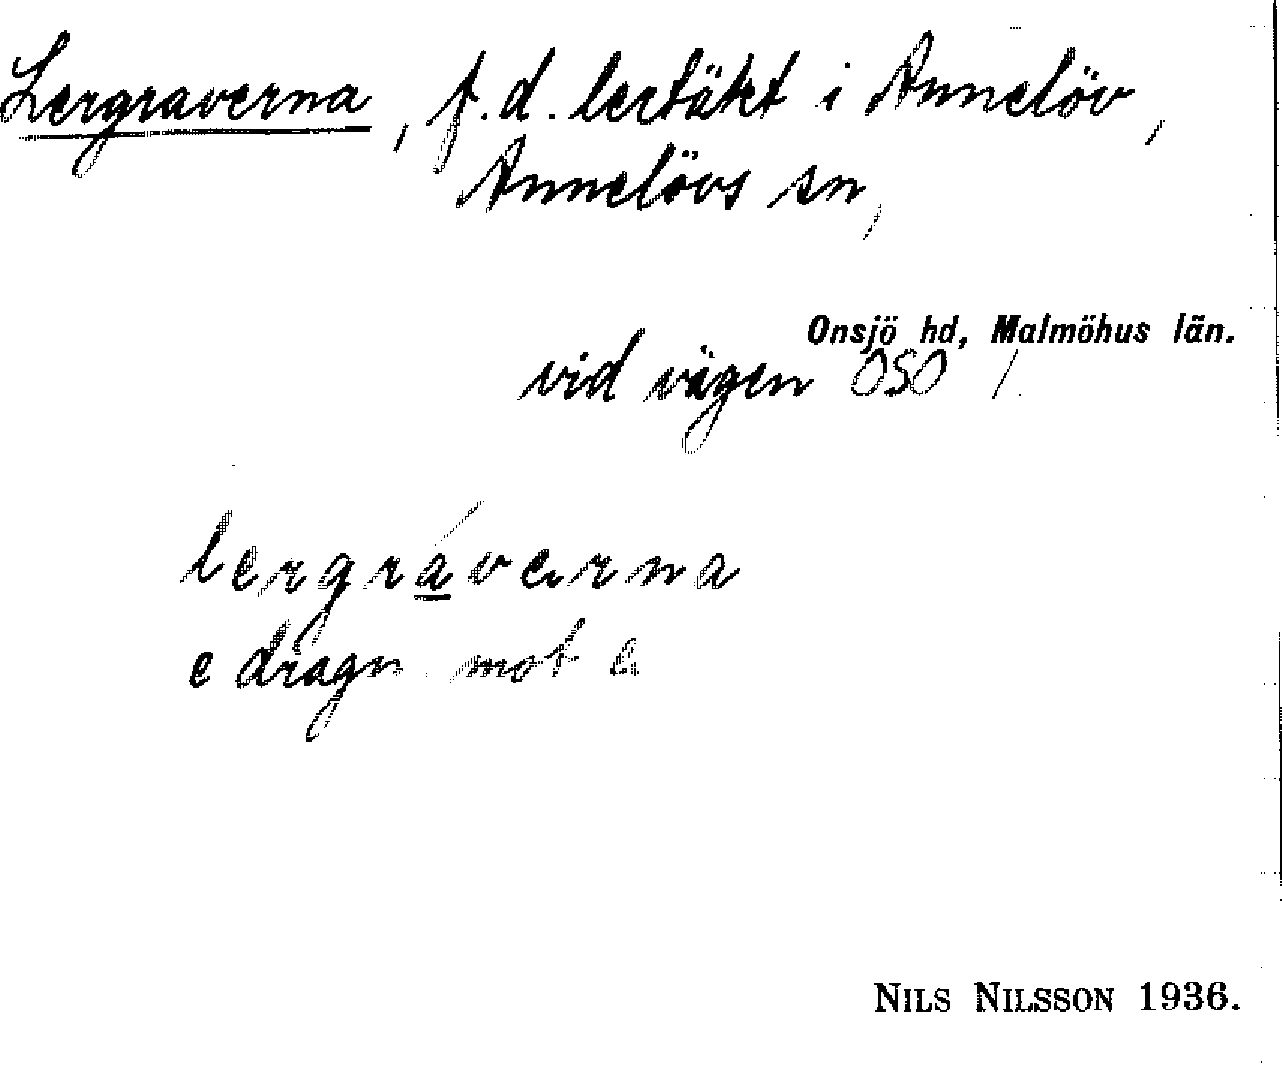 Lergraverna, f.d. lertäkt i Annelöv,
Annelövs sn,
Onsjö hd, Malmöhus län.
vid vägen OSO /.
lergráverna
e dragn mot a
NILS NILSSON 1936.